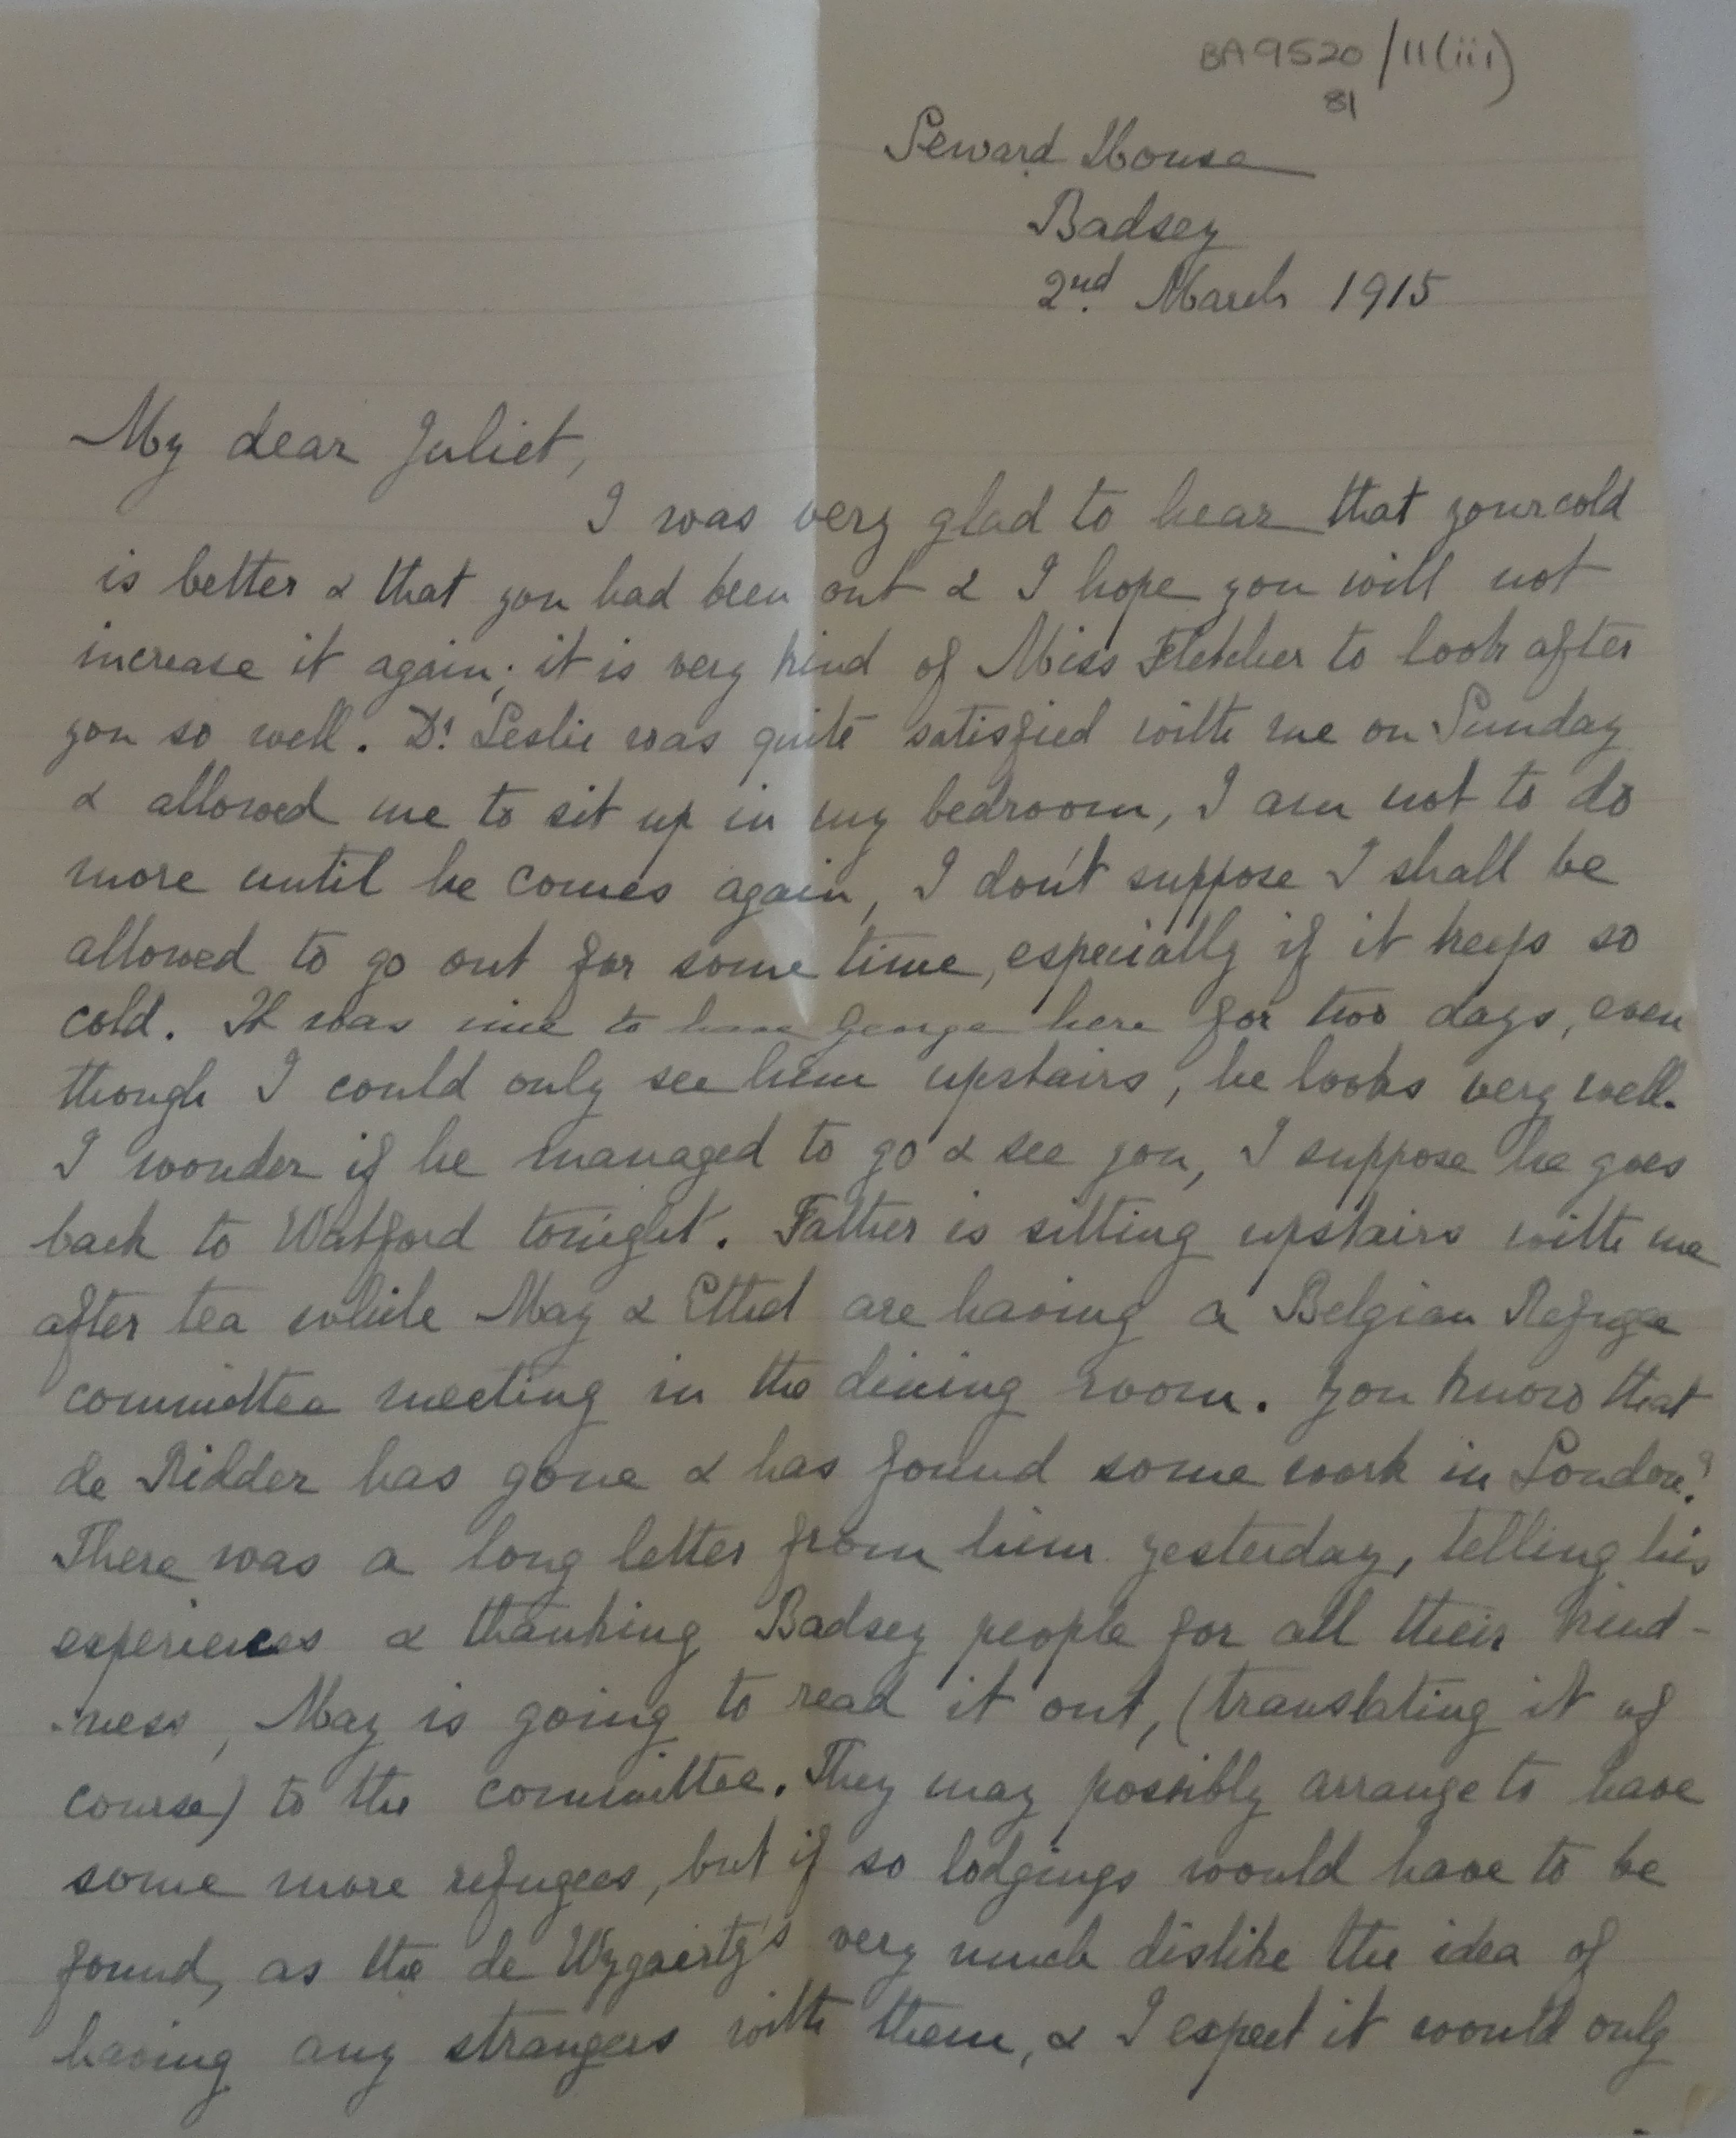 BA9520/11(iii)
81
Seward House
Badsey
2nd. March 1915
My dear Juliet,
I was very glad to hear that your cold
is better & that you had been out & I hope you will not
increase it again; it is very kind of Miss Fletcher to look after
you so well. Dr Leslie was quite satisfied with me on Sunday
& allowed me to sit up in my bedroom, I am not to do
more until he comes again, I don't suppose I shall be
allowed to go out for some time, especially if it keeps so
cold. It was nice to have George here for two days, even
though I could only see him upstairs, he looks very well.
I wonder if he managed to go & see you, I suppose he goes
back to Watford tonight. Father is sitting upstairs with me
after tea while May & Ethel are having a Belgian Refugee
committee meeting in the dining room. You know that
de Ridder has gone & has found some work in London?
There was a long letter from him yesterday, telling his
experiences & thanking Badsey people for all their kind-
-ness, May is going to read it out, (translating it of
course) to the committee. They may possibly arrange to have
some more refugees, but if so lodgings would have to be
found, as the de Wygaerty's very much dislike the idea of
having any strangers with them, & I expect it would only